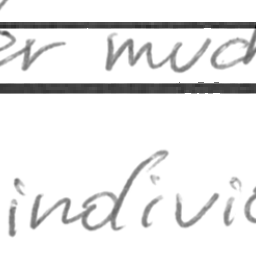 er much
indivi